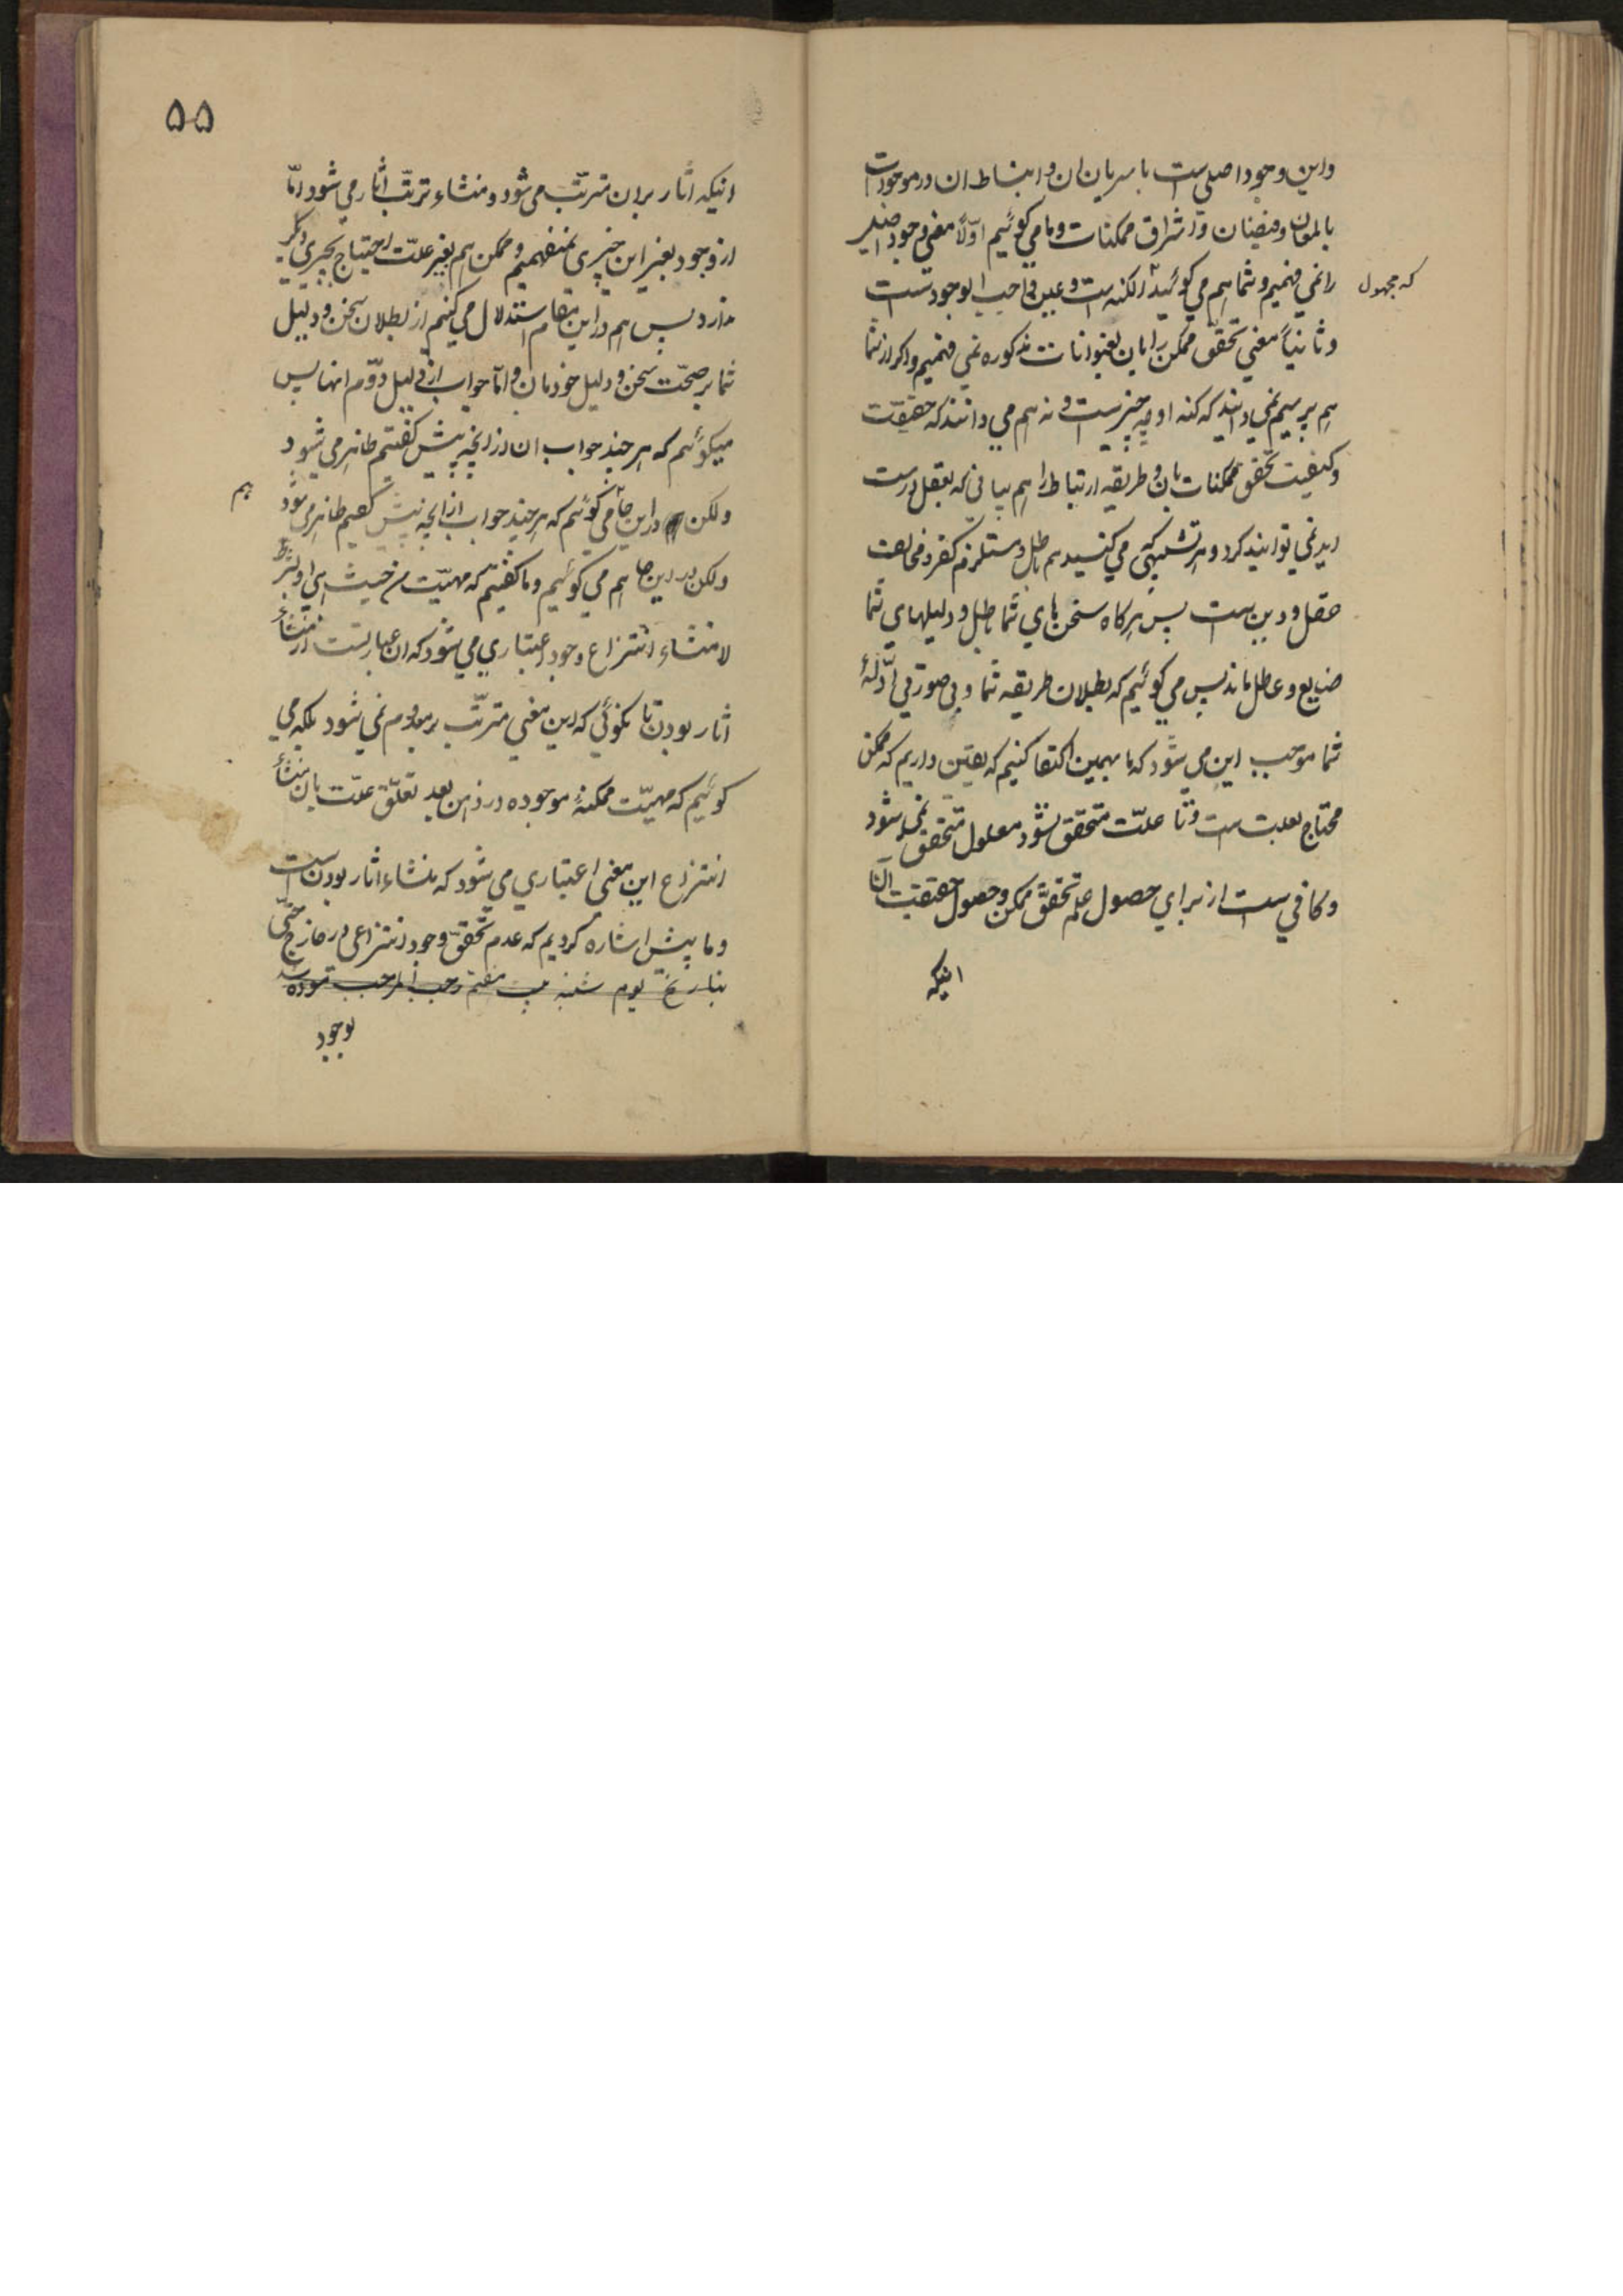 واین وجود اصلی ست با سریان ان و انبساط ان در موجودات
بالمعان و فیضان و اشراق ممکنات و ما می گوئیم اوّلاً معنی وجود اصلی
را نمی فهمیم و شما هم می گوئید که مجهول الکنه ست و عین واجب الوجودست
و ثانیاً معنی تحقّق ممکن را بان بعنوانات مذکوره نمی فهمیم و اکر از شما
هم پرسیم نمی دانید که کنه او چه چیز ست و نه هم می دانند که حقیقت
و کیفیت تحقق ممکنات بان و طریقه ارتباط را هم بیانی که بعقل درست
اید نمی توانید کرد و هر تشبیهی که می کنید هم باطل و مستلزم کفر و مخالفت
عقل و دین ست پس هرکاه سخن های شما باطل و دلیلهای شما
ضایع و عاطل ماند پس می کوئیم که بطلان طریقه شما و بی صورتی ادّلهٔ
شما موجب این می شود که ما بهمین اکتفا کنیم که یقین داریم که ممکن
محتاج بعلت ست و تا علّت متحقق نشود معلول متحقق نمی شود
و کافی ست از برای حصول علم تحقّق ممکن و حصول حقیقت آن تا
اینکه
۵۵
اینکه اثار بران مترتّب می شود و منشاء ترتّب اثار می شود امّا
از وجود بغیر این چیزی نمیفهمیم و ممکن هم بغیر علّت احتیاج بچیزی دیکر
ندارد پس هم در این مقام استدلال می کنیم از بطلان سخن و دلیل
شما بر صحّت سخن و دلیل خودمان و امّا جواب از دلیل دوّم انها پس
میکوئیم که هر چند جواب ان از انچه پیش کفتیم ظاهر می شود
ولکن در این جا می کوئیم که هر چند جواب از انچه پیش کفتیم ظاهر می شود
هم
ولکن در این جا هم می کوئیم و ما کفتیم که مهیّت من حیث هی او بشرط
لا منشاء انتزاع وجود اعتباری می شود که ان عبارتست از منشاء
اثار بودن تا بکوئی که این معنی مترتّب بر معدوم نمی شود بلکه می
کوئیم که مهیّت ممکنهٔ موجوده در ذهن بعد تعلّق علّت بان منشاء
انتزاع این معنی اعتباری می شود که منشاء اثار بودن ست
و ما پیش اشاره کردیم که عدم تحقق وجود انتزاعی در خارج حتّی
بتاریخ یوم شنبه هفتم رجب المرجب نموده شد
بوجود